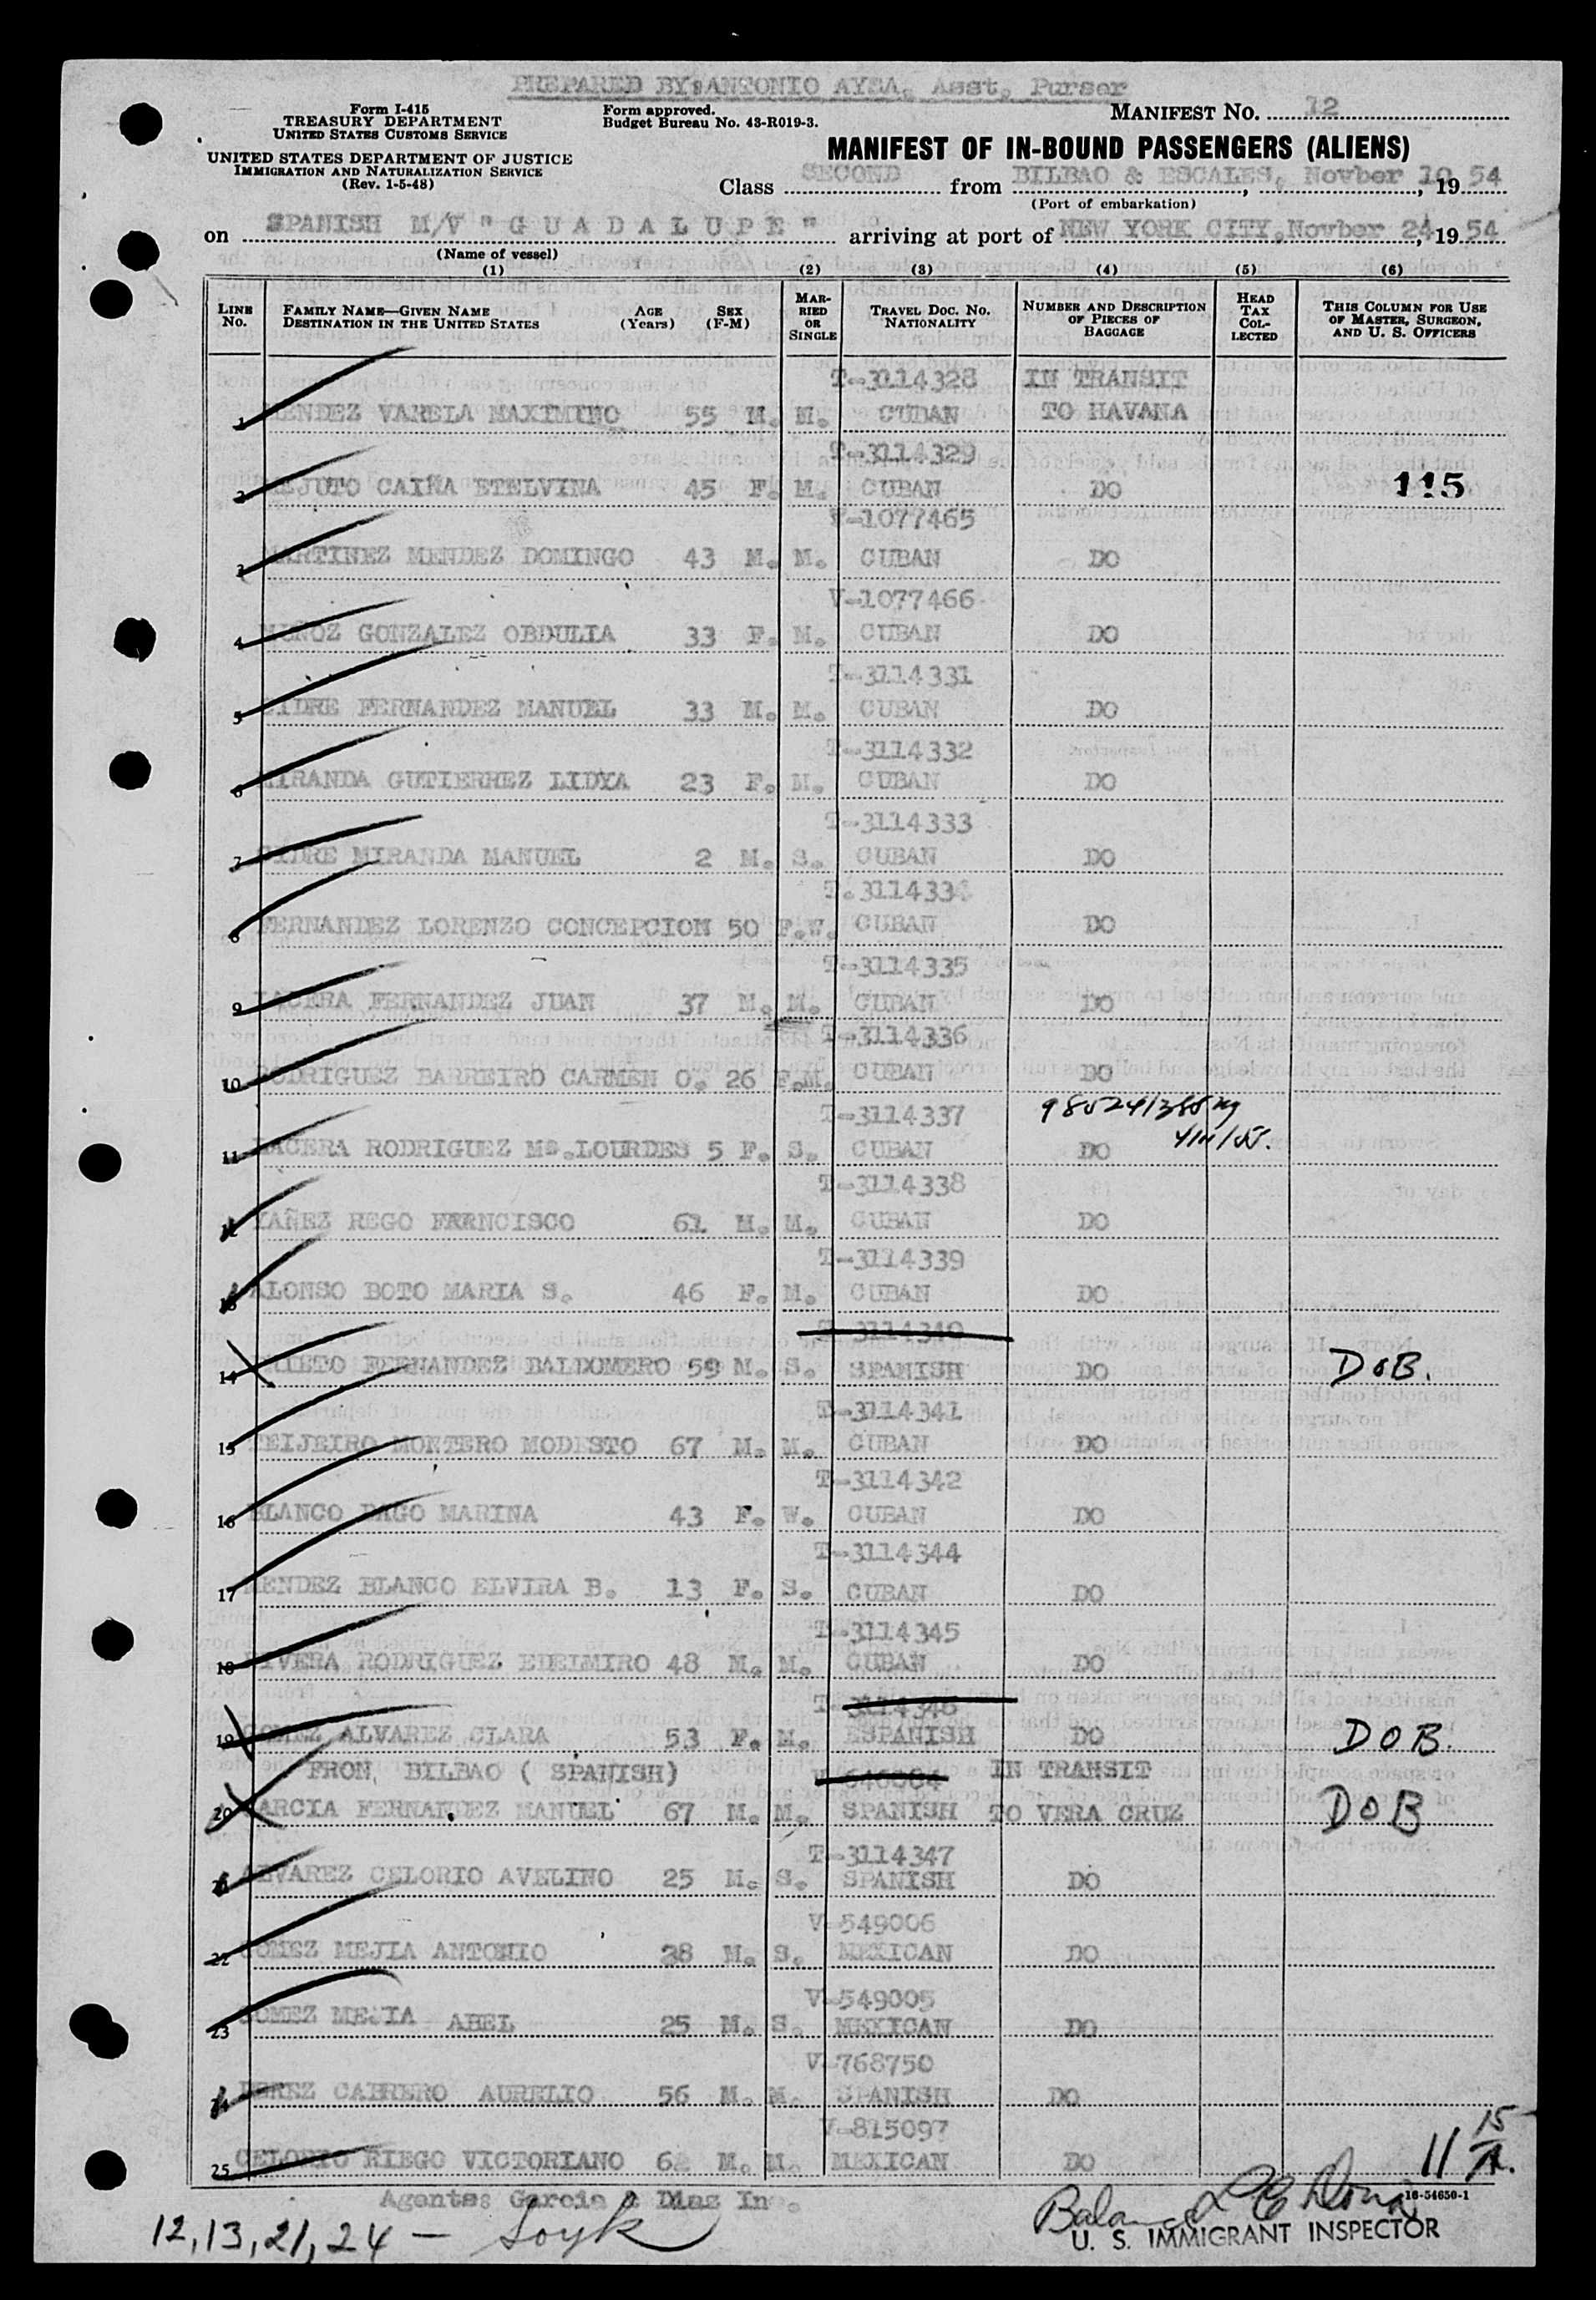 PREPARED BY: ANTONIO AYZA, Asst, Purser
Form I-415
TREASURY DEPARTMENT
UNITED STATES CUSTOMS SERVICE
Form approved.
Budget Bureau No. 43-R019-3.
MANIFEST No. 12
UNITED STATES DEPARTMENT OF JUSTICE
IMMIGRATION AND NATURALIZATION SERVICE
(Rev. 1-5-48)
MANIFEST OF IN-BOUND PASSENGERS (ALIENS)
Class SECOND from BILBAO & ESCALES, Novber 10, 1954
(Port of embarkation)
on SPANISH M/V "GUADALUPE" arriving at port of NEW YORK CITY, Novber 24, 1954
(Name of vessel)
(1) (2) (3) (4) (5) (6)
LINE No. FAMILY NAME—GIVEN NAME DESTINATION IN THE UNITED STATES AGE (Years) SEX (F-M) MARRIED OR SINGLE TRAVEL DOC. NO. NATIONALITY NUMBER AND DESCRIPTION OF PIECES OF BAGGAGE HEAD TAX COLLECTED THIS COLUMN FOR USE OF MASTER, SURGEON, AND U. S. OFFICERS
T-3114328 IN TRANSIT
1 MENDEZ VARELA MAXIMINO 55 M. M. CUBAN TO HAVANA
T-3114329
2 REJUTO CAIÑA ETELVINA 45 F. M. CUBAN DO 115
V-1077465
3 MARTINEZ MENDEZ DOMINGO 43 M. M. CUBAN DO
V-1077466
4 MUÑOZ GONZALEZ OBDULIA 33 F. M. CUBAN DO
T-3114331
5 CIDRE FERNANDEZ MANUEL 33 M. M. CUBAN DO
T-3114332
6 MIRANDA GUTIERREZ LIDYA 23 F. M. CUBAN DO
T-3114333
7 CIDRE MIRANDA MANUEL 2 M. S. CUBAN DO
T.3114334
8 FERNANDEZ LORENZO CONCEPCION 50 F.W. CUBAN DO
T-3114335
9 LACERA FERNANDEZ JUAN 37 M. M. CUBAN DO
T-3114336
10 RODRIGUEZ BARREIRO CARMEN O. 26 F.M. CUBAN DO
T-3114337
11 LACERA RODRIGUEZ Mª.LOURDES 5 F. S. CUBAN DO
T-3114338
12 YAÑEZ REGO FRRNCISCO 61 M. M. CUBAN DO
T-3114339
13 ALONSO BOTO MARIA S. 46 F. M. CUBAN DO
T-3114340
14 PRIETO FERNANDEZ BALDOMERO 59 M. S. SPANISH DO DOB.
T-3114341
15 TEIJEIRO MONTERO MODESTO 67 M. M. CUBAN DO
T-3114342
16 BLANCO DAGO MARINA 43 F. W. CUBAN DO
T-3114344
17 MENDEZ BLANCO ELVIRA B. 13 F. S. CUBAN DO
T-3114345
18 RIVERA RODRIGUEZ EDELMIRO 48 M. M. CUBAN DO
T-3114346
19 GOMEZ ALVAREZ CLARA 53 F. M. ESPANISH DO DOB.
FRON, BILBAO ( SPANISH) V-646084 IN TRANSIT
20 GARCIA FERNANDEZ MANUEL 67 M. M. SPANISH TO VERA CRUZ DOB
T-3114347
21 ALVAREZ CELORIO AVELINO 25 M. S. SPANISH DO
V-549006
22 GOMEZ MEJIA ANTONIO 38 M. S. MEXICAN DO
V-549005
23 GOMEZ MEJIA ABEL 25 M. S. MEXICAN DO
V-768750
24 PEREZ CABRERO AURELIO 56 M. M. SPANISH DO
V-815097
25 CELORIO RIEGO VICTORIANO 62 M. M. MEXICAN DO
11 15
Agentes Garcia & Diaz Inc.
16-54650-1
12, 13, 21, 24 —
U. S. IMMIGRANT INSPECTOR